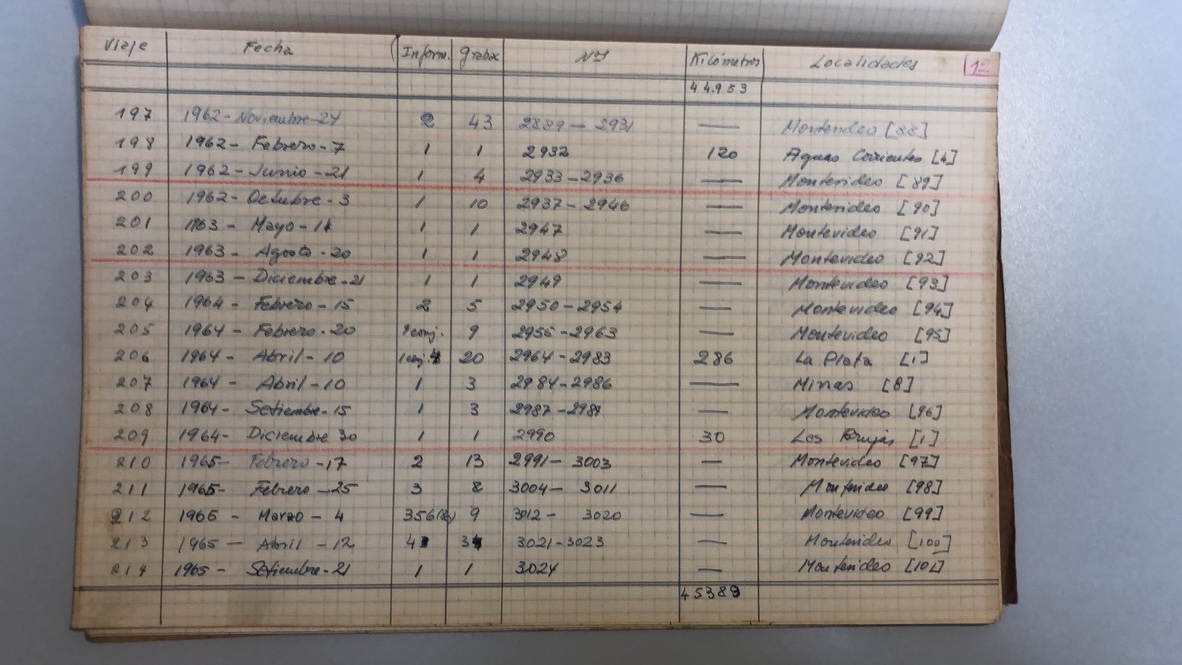 Viaje Fecha Inform. Grabac. Nos Kilómetros Localidades 12
44953
197 1962 - Noviembre - 24 2 43 2889 - 2931 — Montevideo [88]
198 1962 - Febrero - 7 1 1 2932 120 Aguas Corrientes [4]
199 1962 - Junio - 21 1 4 2933 - 2936 — Montevideo [89]
200 1962 - Octubre - 3 1 10 2937 - 2946 — Montevideo [90]
201 1963 - Mayo - 1 1 2947 — Montevideo [91]
202 1963 - Agosto - 20 1 1 2948 — Montevideo [92]
203 1963 - Diciembre - 21 1 1 2949 — Montevideo [93]
204 1964 - Febrero - 15 2 5 2950 - 2954 — Montevideo [94]
205 1964 - Febrero - 20 1 conj. 9 2955 - 2963 — Montevideo [95]
206 1964 - Abril - 10 1 conj. 20 2964 - 2983 286 La Plata [1]
207 1964 - Abril - 10 1 3 2984 - 2986 — Minas [8]
208 1964 - Setiembre - 15 1 3 2987 - 2989 — Montevideo [96]
209 1964 - Diciembre 30 1 1 2990 30 Las Brujas [1]
210 1965 - Febrero - 17 2 13 2991 - 3003 — Montevideo [97]
211 1965 - Febrero - 25 3 8 3004 - 3011 — Montevideo [98]
212 1965 - Marzo - 4 9 3012 - 3020 — Montevideo [99]
213 1965 - Abril - 12 3021 - 3023 — Montevideo [100]
214 1965 - Setiembre - 21 1 1 3024 — Montevideo [101]
45389